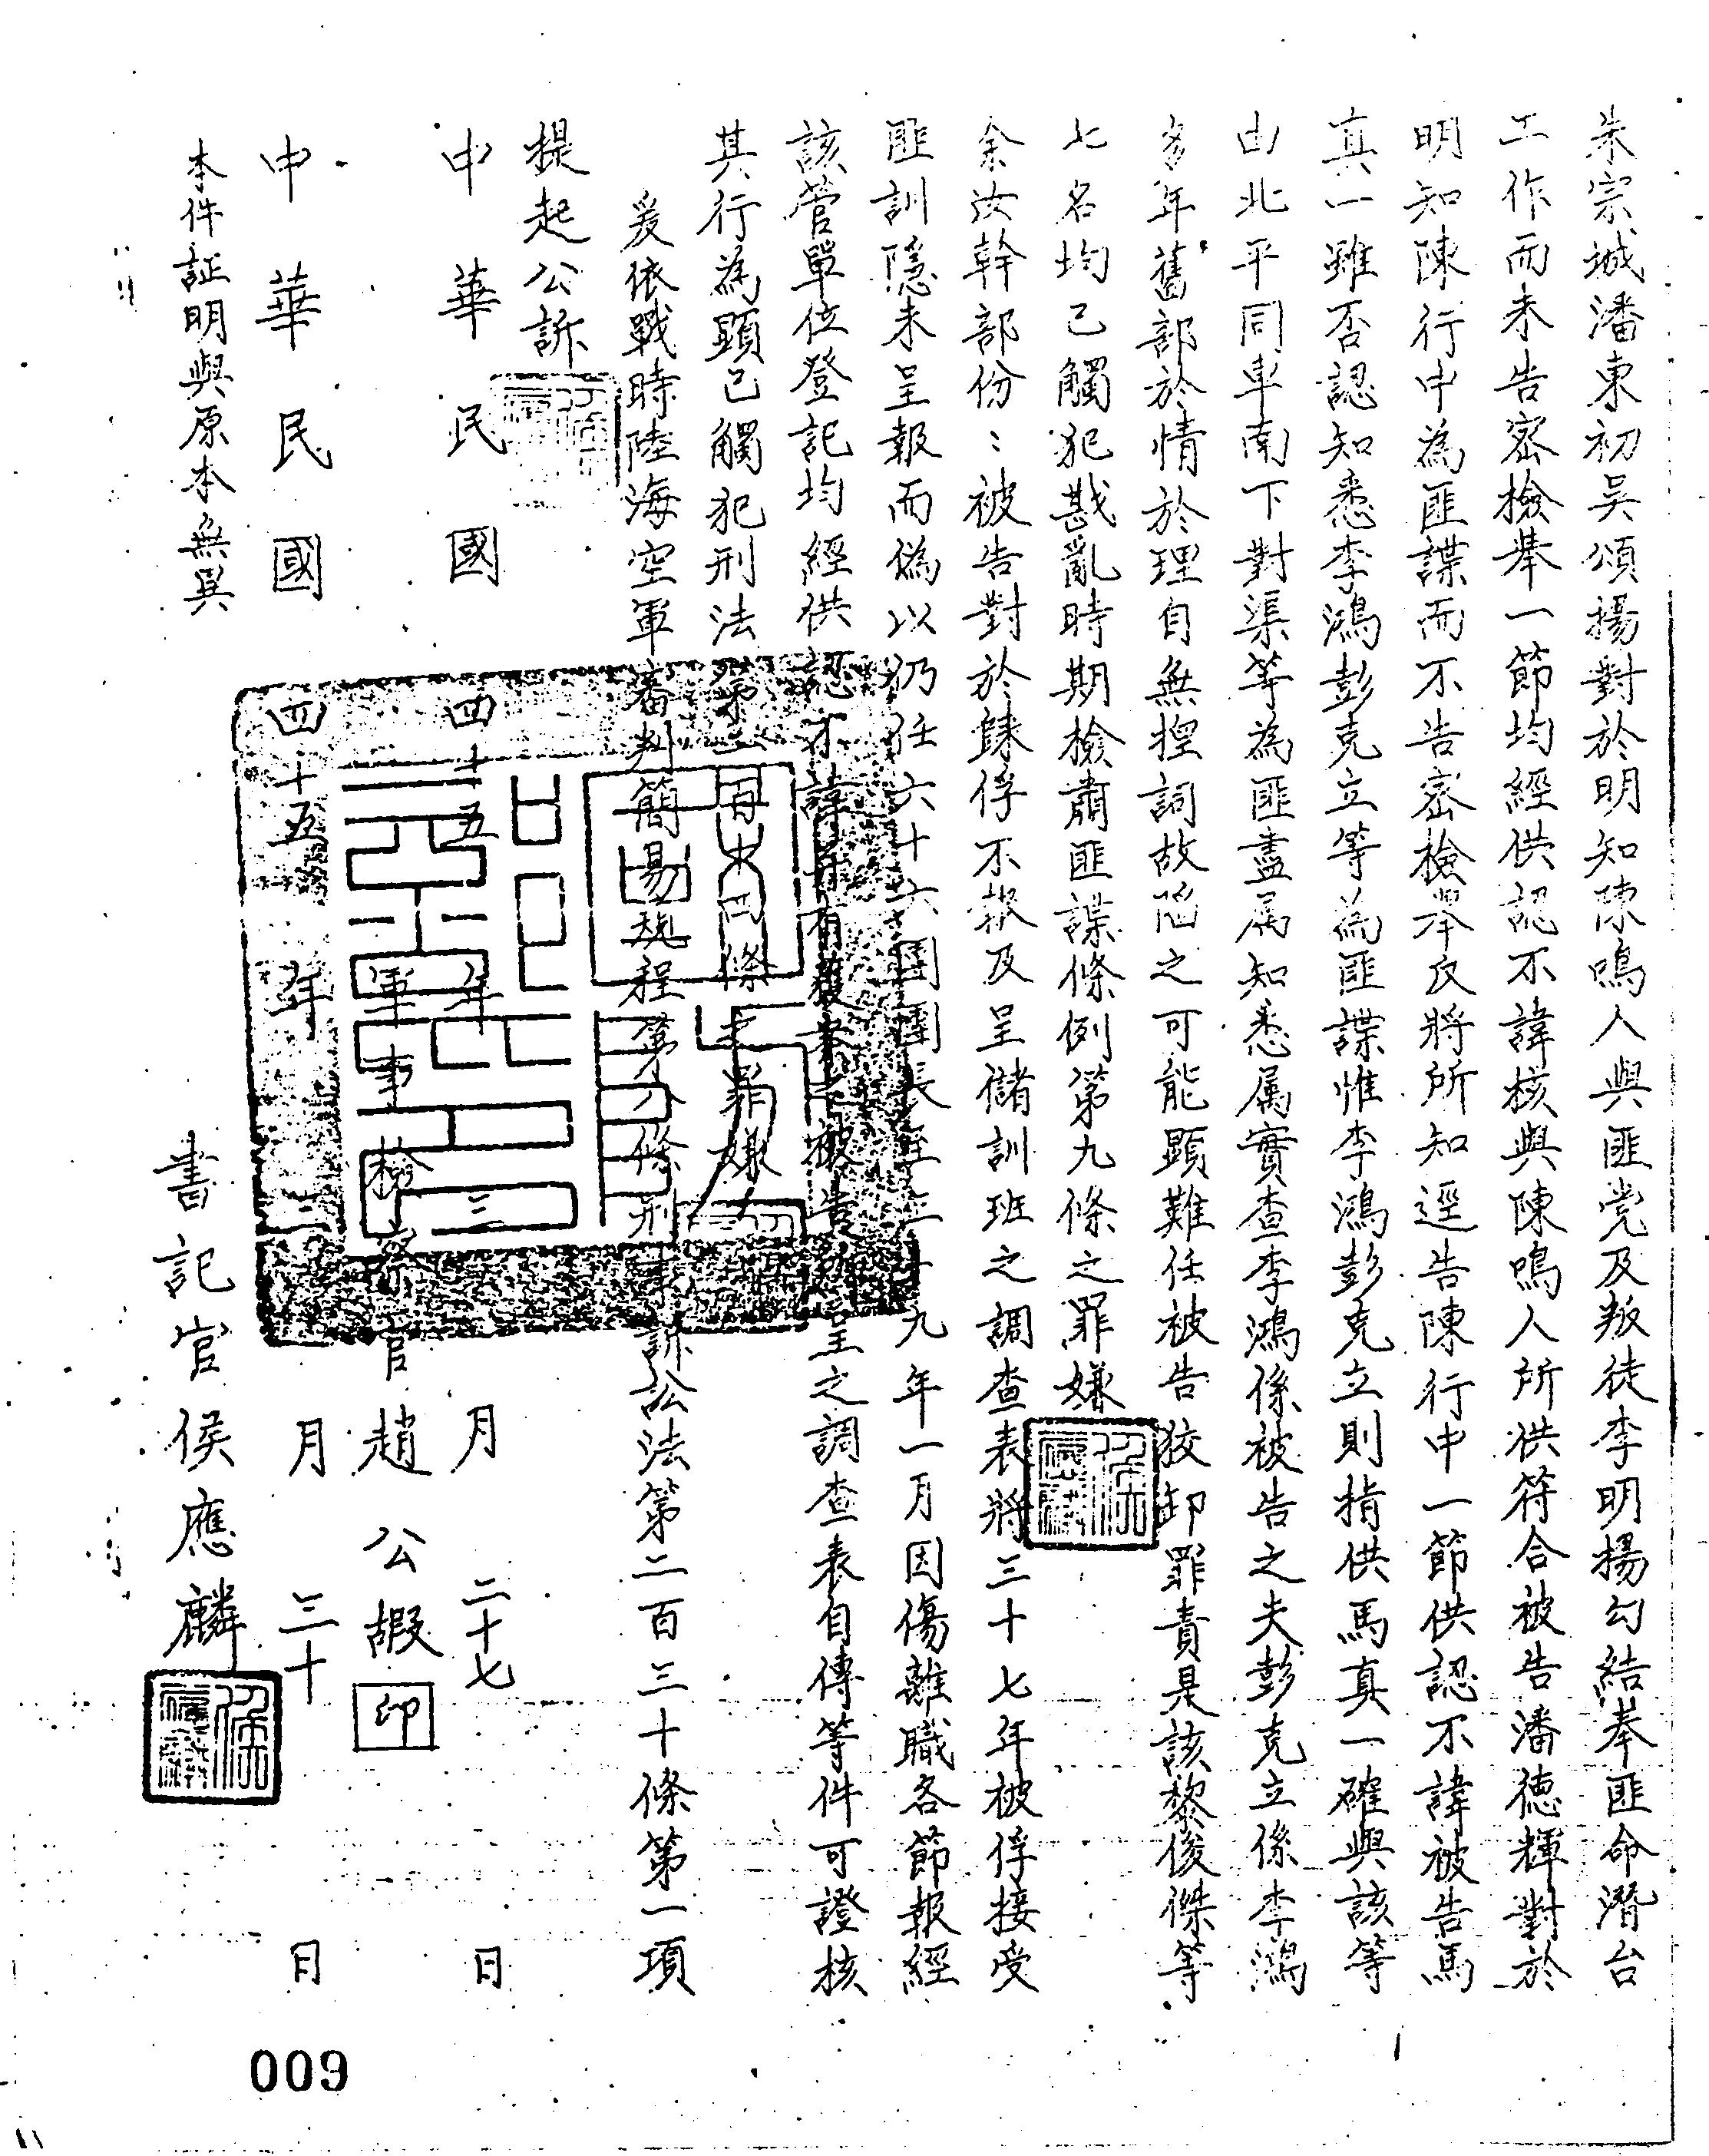 朱宗城潘東初吳頌揚對於明知陳鳴人與匪党及叛徒李明揚勾結奉匪命潛台
工作而未告密檢举一節均經供認不諱核與陳鳴人所供符合被告潘德輝對於
明知陳行中為匪諜而不告密檢举反將所知逕告陳行中一節供認不諱被告馬
真一雖否認知悉李鴻彭克立等為匪諜惟李鴻彭克立則指供馬真一確與該等
由北平同車南下對渠等為匪盡属知悉属實查李鴻係被告之夫彭克立係李鴻
多年舊部於情於理自無捏詞故陷之可能顯難任被告狡卸罪責是該黎俊傑等
七名均已觸犯戡亂時期檢肅匪諜條例第九條之罪嫌
余汝幹部份：被告對於隸俘不报及呈儲訓班之調查表將三十七年被俘接受
匪訓隱未呈報而偽以仍任六十六團團長至三十九年一月因傷離職各節報經
該管單位登記均經供認不諱并有被告所呈之調查表自傳等件可證核
其行為顕已觸犯刑法第二百十四條之罪嫌
爰依戰時陸海空軍審判簡易規程第八條刑事訴訟法第二百三十條第一項
提起公訴
中華民國四十五年三月二十七日
軍事檢察官趙公嘏 印
中華民國四十五年三月三十日
本件証明與原本無異
書記官侯應麟
009